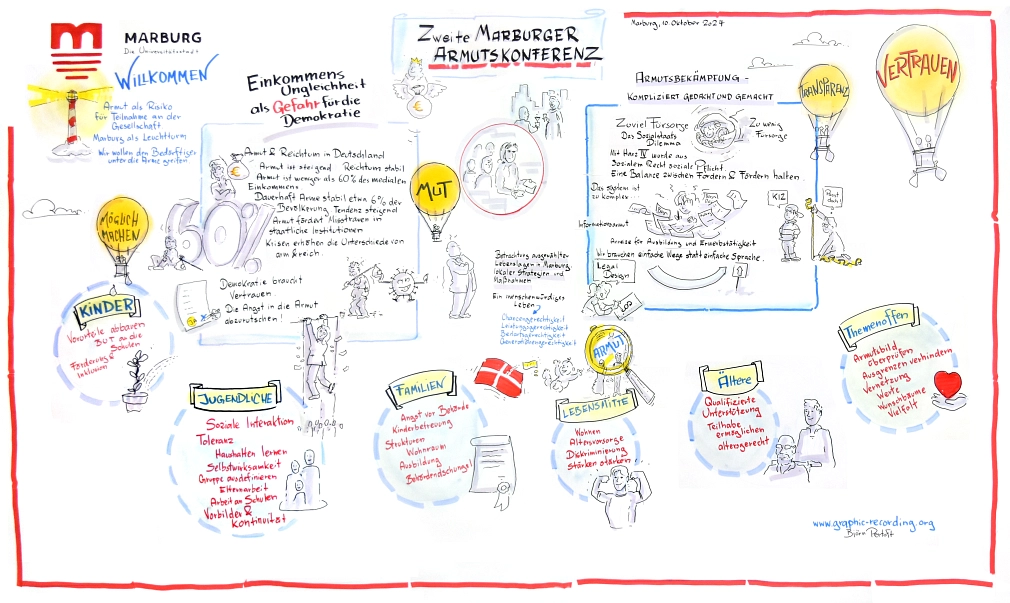 MARBURG
Die Universitätsstadt
WILLKOMMEN
Armut als Risiko
für Teilnahme an der
Gesellschaft
Marburg als Leuchtturm
Wir wollen den Bedürftigen
unter die Arme greifen
Zweite MARBURGER
ARMUTSKONFERENZ
Marburg, 10. Oktober 2024
Einkommens
Ungleichheit
als Gefahr für die
Demokratie
Armut & Reichtum in Deutschland
Armut ist steigend Reichtum stabil
Armut ist weniger als 60% des medialen
Einkommens.
Dauerhaft Arme stabil etwa 6% der
Bevölkerung Tendenz steigend
Armut fördert Misstrauen in
staatliche Institutionen
Krisen erhöhen die Unterschiede von
arm & reich.
60%
Demokratie braucht
Vertrauen.
Die Angst in die Armut
abzurutschen!
MÖGLICH
MACHEN
MUT
TRANSPARENZ
VERTRAUEN
ARMUTSBEKÄMPFUNG -
KOMPLIZIERT GEDACHT UND GEMACHT
Zuviel Fürsorge
Das Sozialstaats
Dilemma
Zu wenig
Fürsorge
Mit Harz IV wurde aus
Sozialem Recht soziale Pflicht.
Eine Balance zwischen Fördern & Fordern halten.
Das System ist
zu komplex...
KIZ
Passt
doch!
Informationsarmut
Anreize für Ausbildung und Erwerbstätigkeit
Wir brauchen einfache Wege statt einfache Sprache.
Legal
Design
LOG
Betrachtung ausgewählter
Lebenslagen in Marburg,
lokaler Strategien und
Maßnahmen
Ein menschenwürdiges
Leben
Chancengerechtigkeit
Leistungsgerechtigkeit
Bedarfsgerechtigkeit
Generationengerechtigkeit
ARMUT
KINDER
Vorurteile abbauen
BUT an die
Schulen
Förderung &
Inklusion
JUGENDLICHE
Soziale Interaktion
Toleranz
Haushalten lernen
Selbstwirksamkeit
Gruppe ausdefinieren
Elternarbeit
Arbeit an Schulen
Vorbilder &
Kontinuität
FAMILIEN
Angst vor Behörde
Kinderbetreuung
Strukturen
Wohnraum
Ausbildung
Behördendschungel
LEBENSMITTE
Wohnen
Altersvorsorge
Diskriminierung
Stärken stärken
Ältere
Qualifizierte
Unterstützung
Teilhabe
ermöglichen
altersgerecht
Themenoffen
Armutsbild
überprüfen
Ausgrenzen verhindern
Vernetzung
Werte
Wunschbäume
Vielfalt
www.graphic-recording.org